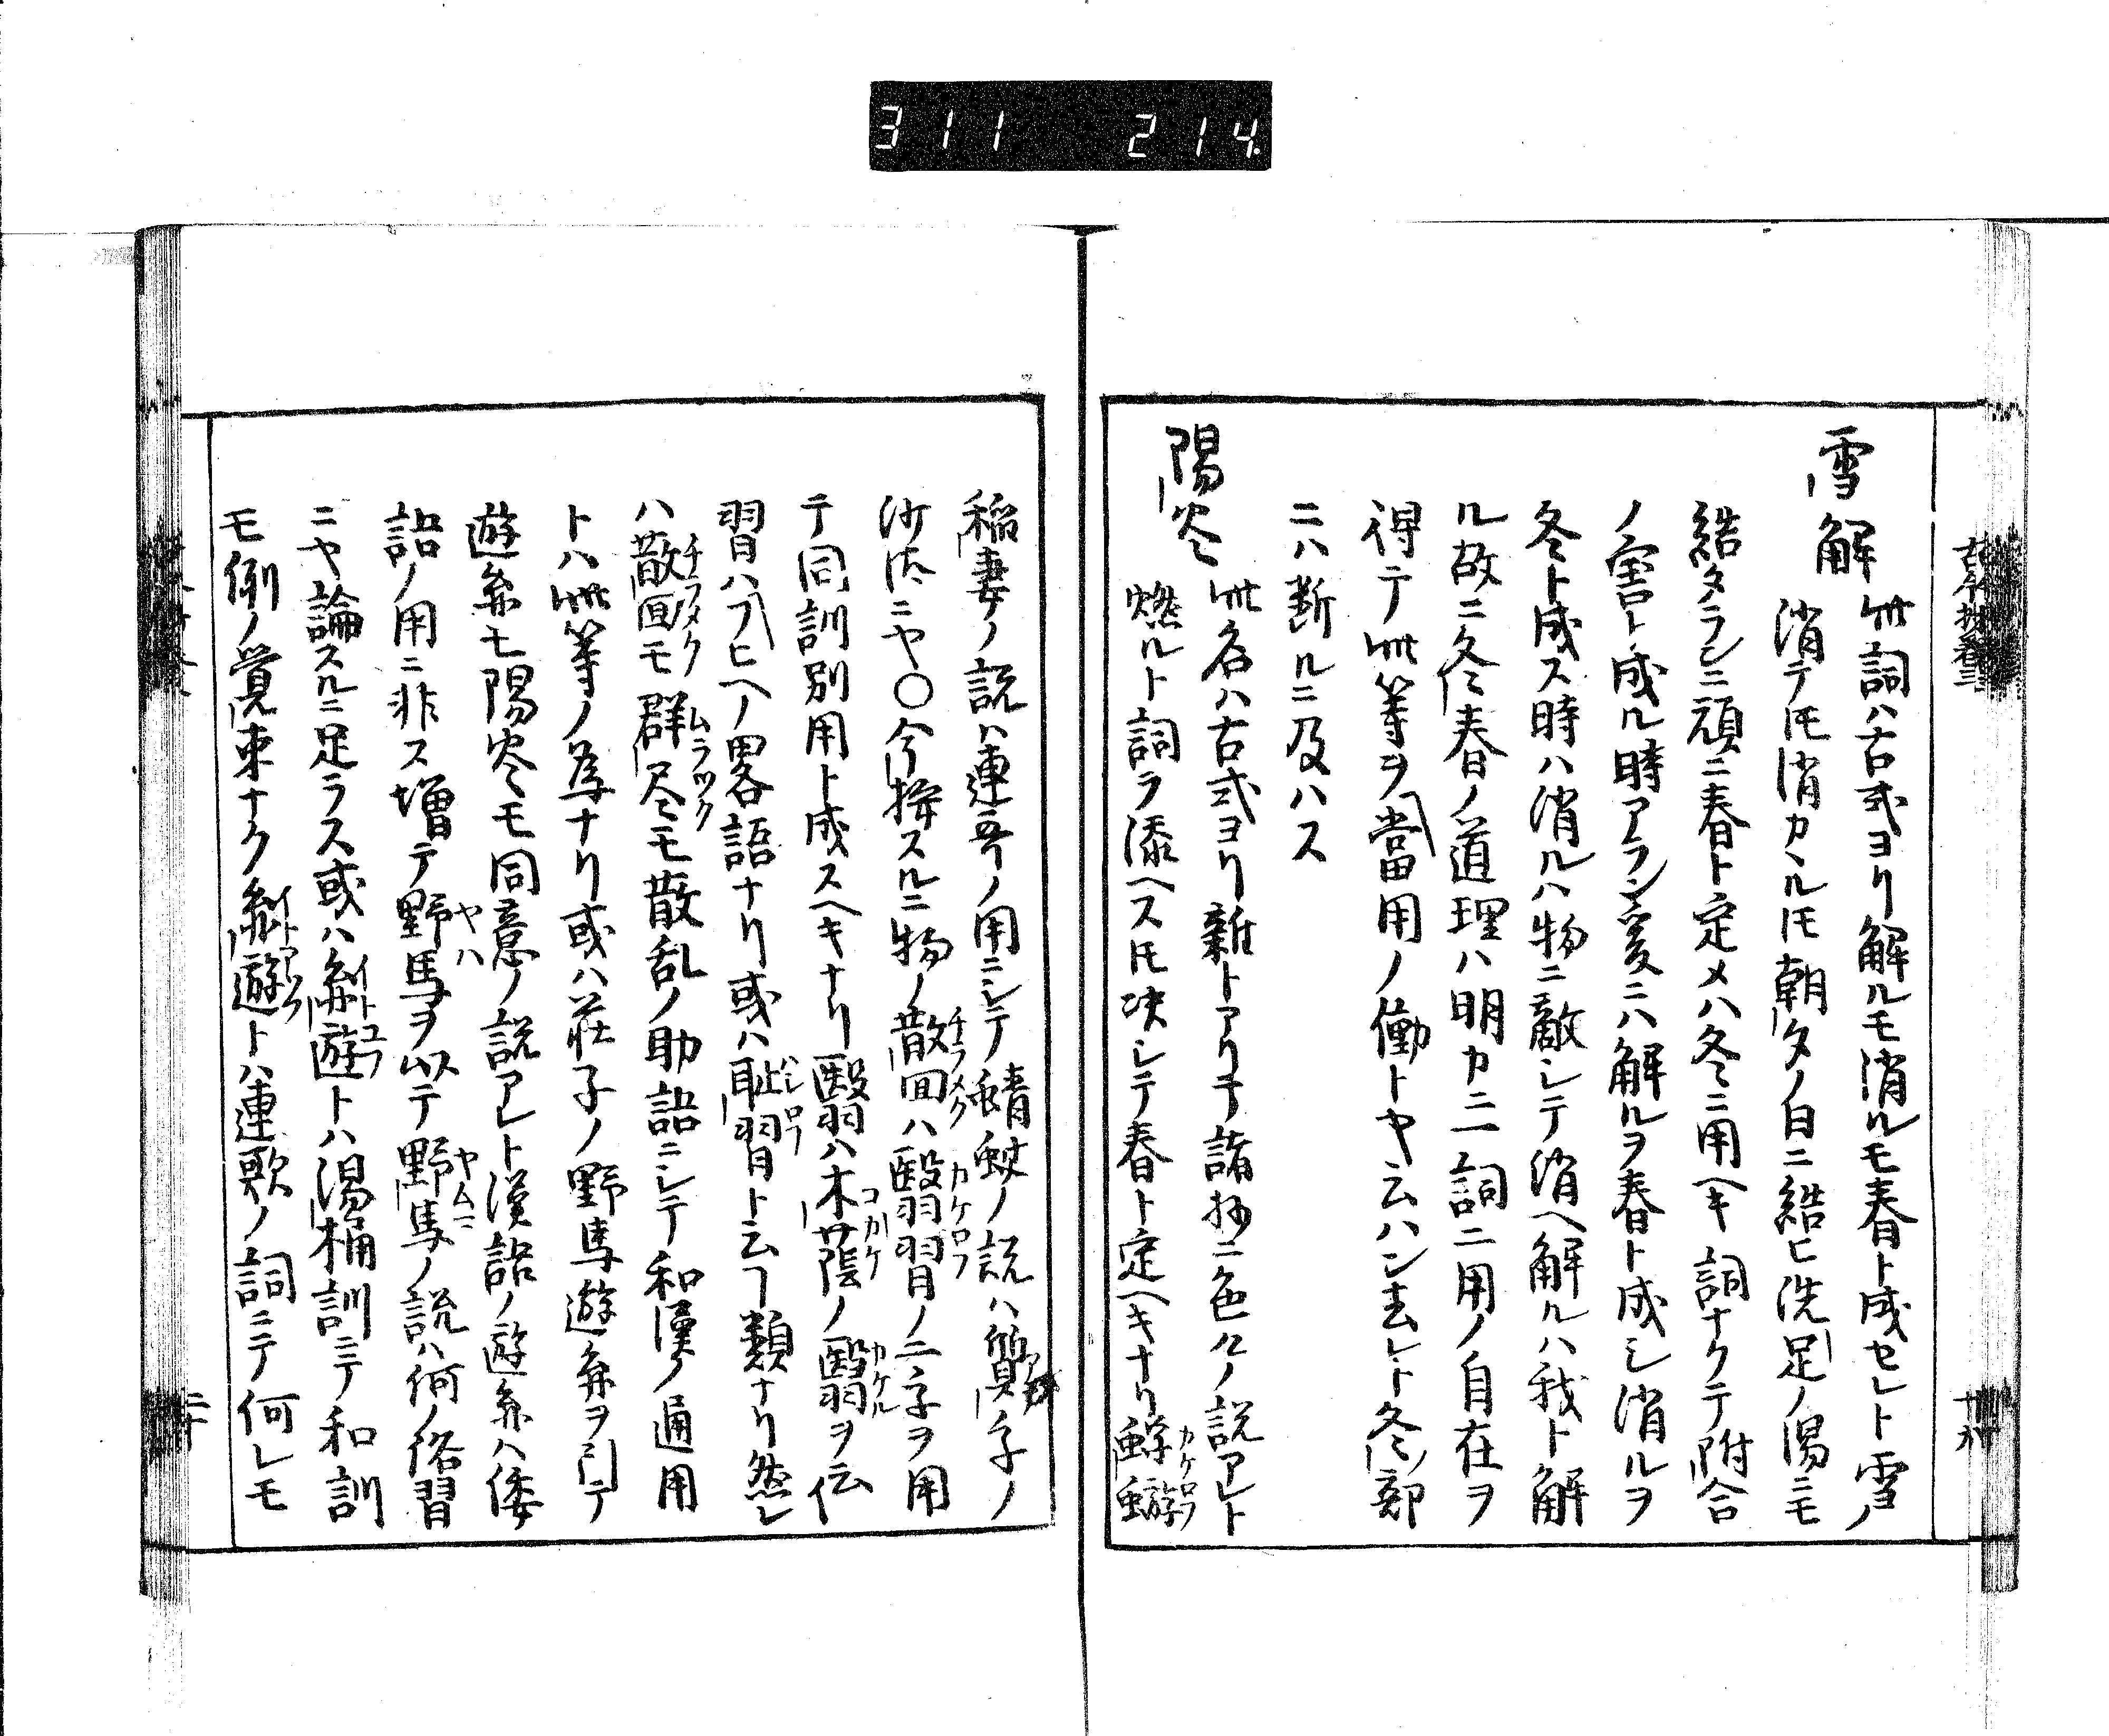 311 214
雪解 此詞ハ古式ヨリ解ルモ消ルモ春ト成セレト雪ノ
消テ𪜈消カヽル𪜈朝夕ノ白ニ結ヒ洗足ノ湯ニモ
結タランニ頑ニ春ト定メハ冬ニ用ヘキ詞ナクテ附合
ノ害ト成ル時アラン爰ニハ解ルヲ春ト成シ消ルヲ
冬ト成ス時ハ消ルハ物ニ敵シテ消ヘ解ルハ我ト解
ル故ニ冬ト春ノ道理ハ明カニ一詞ニ用ノ自在ヲ
得テ此等ヲ當用ノ働トヤ云ハン去レト冬ノ部
ニハ断ルニ及ハス
陽炎 此名ハ古式ヨリ雜トアリテ諸抄ニ色々ノ説アレト
燃ルト詞ヲ添ヘス𪜈决シテ春ト定ヘキナリ蜉蝣カケロフ
稲妻ノ説ハ連哥ノ用ニシテ蜻蛟ノ説ハ篗字ノ
沙汰ニヤ○今按スルニ物ノ散面チラメクハ翳習カケロフノ二字ヲ用
テ同訓別用ト成スヘキナリ翳ハ木蔭コカケノ翳カケルヲ伝
習ハフヒヘノ畧語ナリ或ハ恥習ハシロフト云フ類ナリ然レ
ハ散面チラメクモ群尽ムラツクモ散乱ノ助語ニシテ和漢ノ通用
トハ此等ノ為ナリ或ハ荘子ノ野馬遊糸ヲ引テ
遊糸モ陽炎モ同意ノ説アレト漢語ノ遊糸ハ倭
語ノ用ニ非ス増テ野馬ヤハヲ以テ野馬ヤムマノ説ハ何ノ俗習
ニヤ論スルニ足ラス或ハ糸遊イトユフトハ湯桶訓ニテ和訓
モ例ノ覚束ナク糸遊イトアソフトハ連歌ノ詞ニテ何レモ
二十